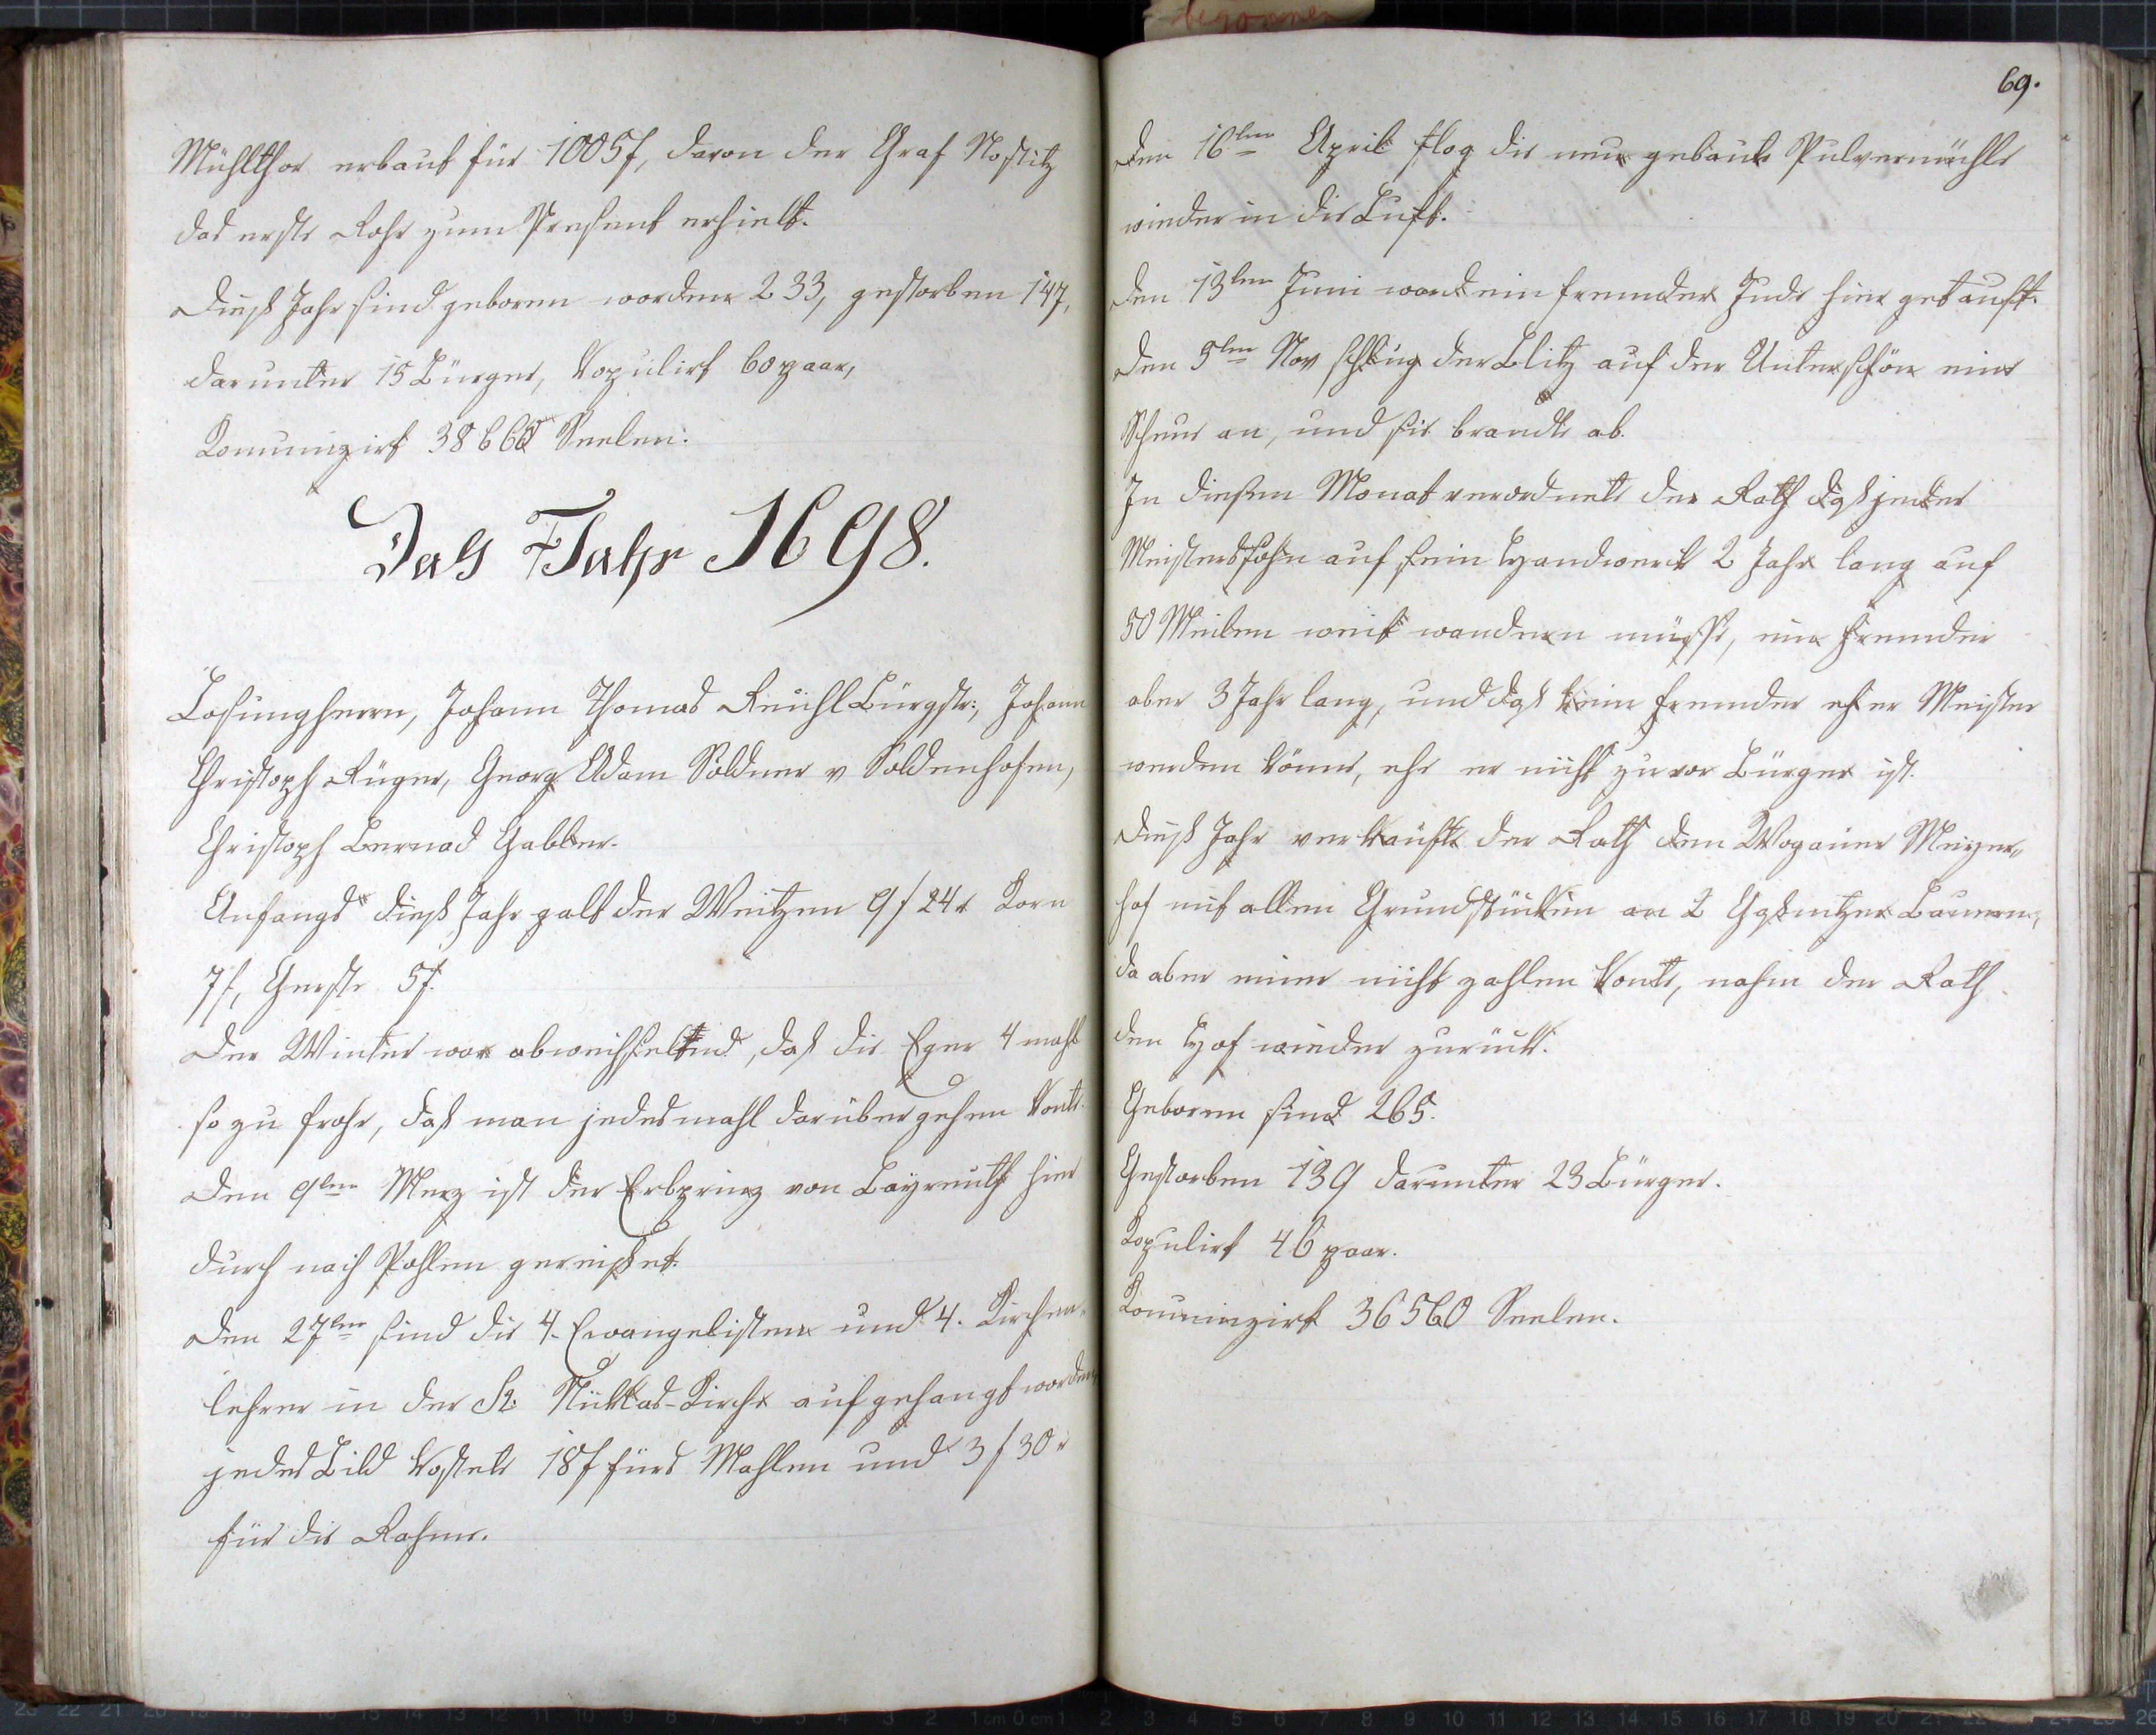 Mühlthor erbaut für 1005f, davon der Graf Nostitz
das erste Rohr zum Present erhielt.
Dieß Jahr sind geboren worden 233, gestorben 147,
darunter 15 Bürger, Kopulirt 60 paar,
Komunizirt 38660 Seelen.
Das Jahr 1698.
Losungherrn, Johann Thomas Reichl Bürgstr:, Johann
Christoph Rüger, Georg Adam Söldner v Söldenhofen,
Christoph Bernad Gabler.
Anfangs dieß Jahr galt der Weitzen 9f 24x Korn
7f, Gerste 5f.
Der Winter war abweichselend, daß die Eger 4 mahl
so zu frohr, daß man jedesmahl darüber gehen konte.
Den 9ten Merz ist der Erbprinz von Bayreuth hier
durch nach Pohlen gereißet.
Den 27ten sind die 4. Evangelisten und 4. Kirchen-
lehrer in der St: Nicklas-Kirche aufgehangt worden,
jedes Bild kostete 18f fürs Mahlen und 3f 30x
für die Rahme.
begonnen
69.
Den 16ten April flog die neue gebaute Pulvermühle
wieder in die Luft.
Den 13ten Juni ward ein fremder Jude hier getauft.
Den 5ten Nov schlug der Blitz auf der Unterschön eine
Scheue an, und sie brandte ab.
In diesem Monat verordnete der Rath daß jeder
Meisterssohn auf sein Handwerck 2 Jahr lang auf
50 Meilen weit wandern müsse, ein Fremder
aber 3 Jahr lang, und daß kein Fremder eher Meister
werden könne, ehe er nicht zuvor Bürger ist.
Dieß Jahr verkaufte der Rath den Wogauer Meyer-
hof mit allen Grundstücken an 2 Bauern,
da aber einer nicht zahlen konte, nahm der Rath
den Hof wieder zurück.
Geboren sind 265.
Gestorben 139 darunter 23 Bürger.
Kopulirt 46 paar.
Komunizirt 36560 Seelen.